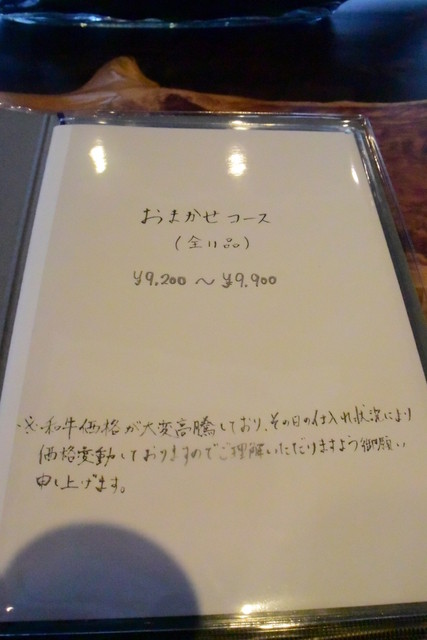 おまかせコース
(全11品)
¥9,200 〜 ¥9,900
※和牛価格が大変高騰しており、その日の仕入れ状況により
価格変動しておりますのでご理解いただけますよう御願い
申し上げます。